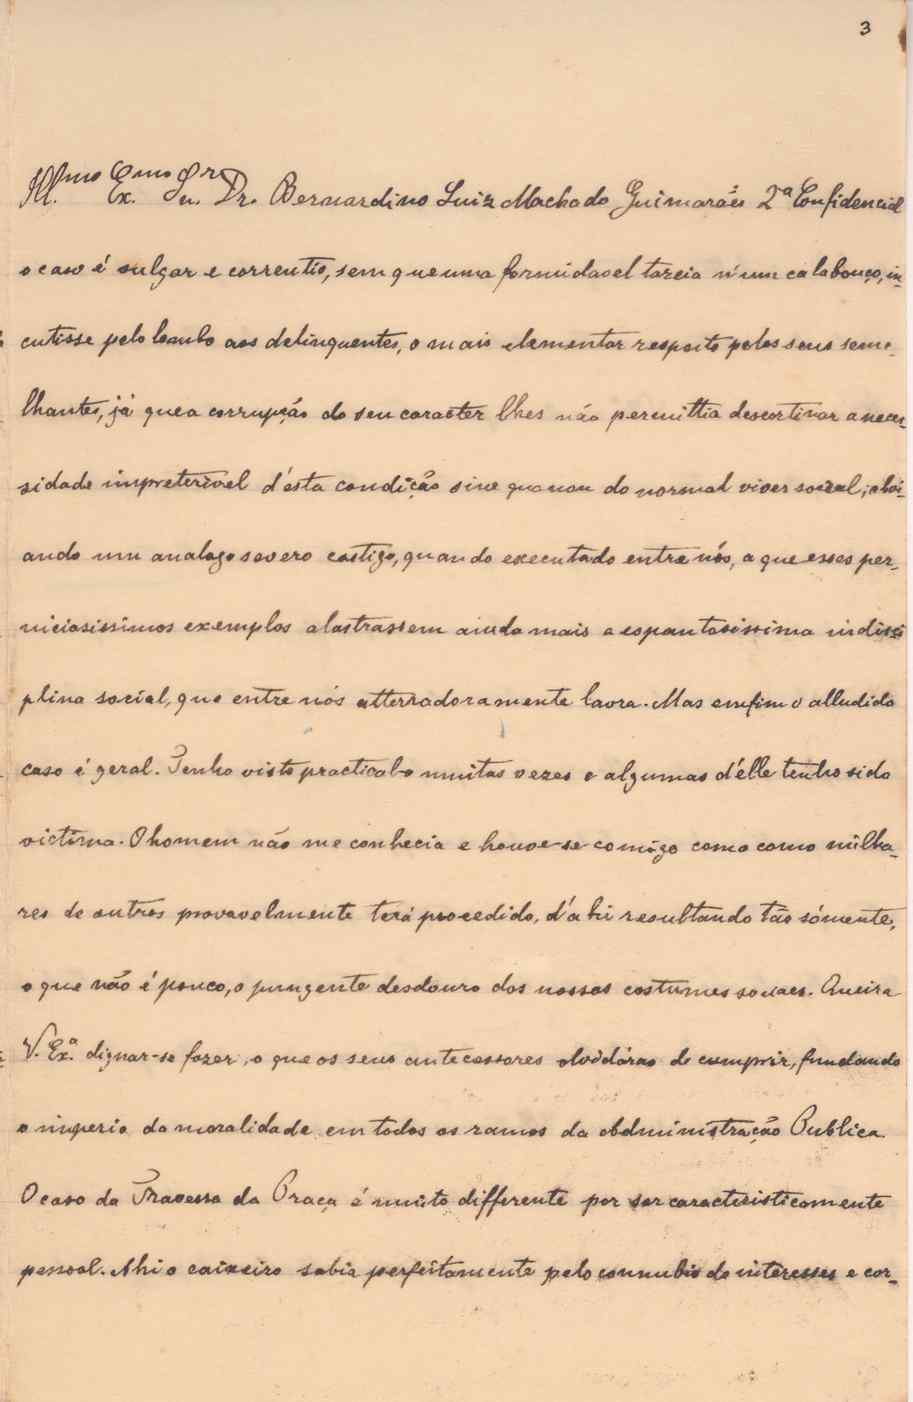 3
Ill.mo Ex.mo Snr. Dr. Bernardino Luiz Machado Guimarães 2ª Confidencial
o caso é vulgar e correntio, sem que uma formidavel tareia n'um calabouço, in-
cutisse pelo lombo aos delinquentes, o mais elementar respeito pelos seus seme-
lhantes, já que a corrupção do seu caracter lhes não permittia descortinar a neces-
sidade impreterivel d'esta condição sine qua non do normal viver social; obvi-
ando um analogo severo castigo, quando executado entre nós, a que esses per-
niciosissimos exemplos alastrassem ainda mais a espantosissima indisci-
plina social, que entre nós atterradoramente lavra. Mas emfim o alludido
caso é geral. Tenho visto practical-o muitas vezes e algumas d'élle tenho sido
victima. O homem não me conhecia e houve-se comigo como como milha-
res de outros provavelmente terá procedido, d'ahi resultando tão sómente,
o que não é pouco, o pungente desdouro dos nossos costumes sociaes. Queira
V. Ex.ª dignar-se fazer, o que os seus antecessores olvidárão de cumprir, fundando
o imperio da moralidade em todos os ramos da abdministração Publica.
O caso da Travessa da Praça é muito differente por ser caracteristicamente
pessoal. Ahi o caixeiro sabia perfeitamente pelo connubio de interesses e cor-